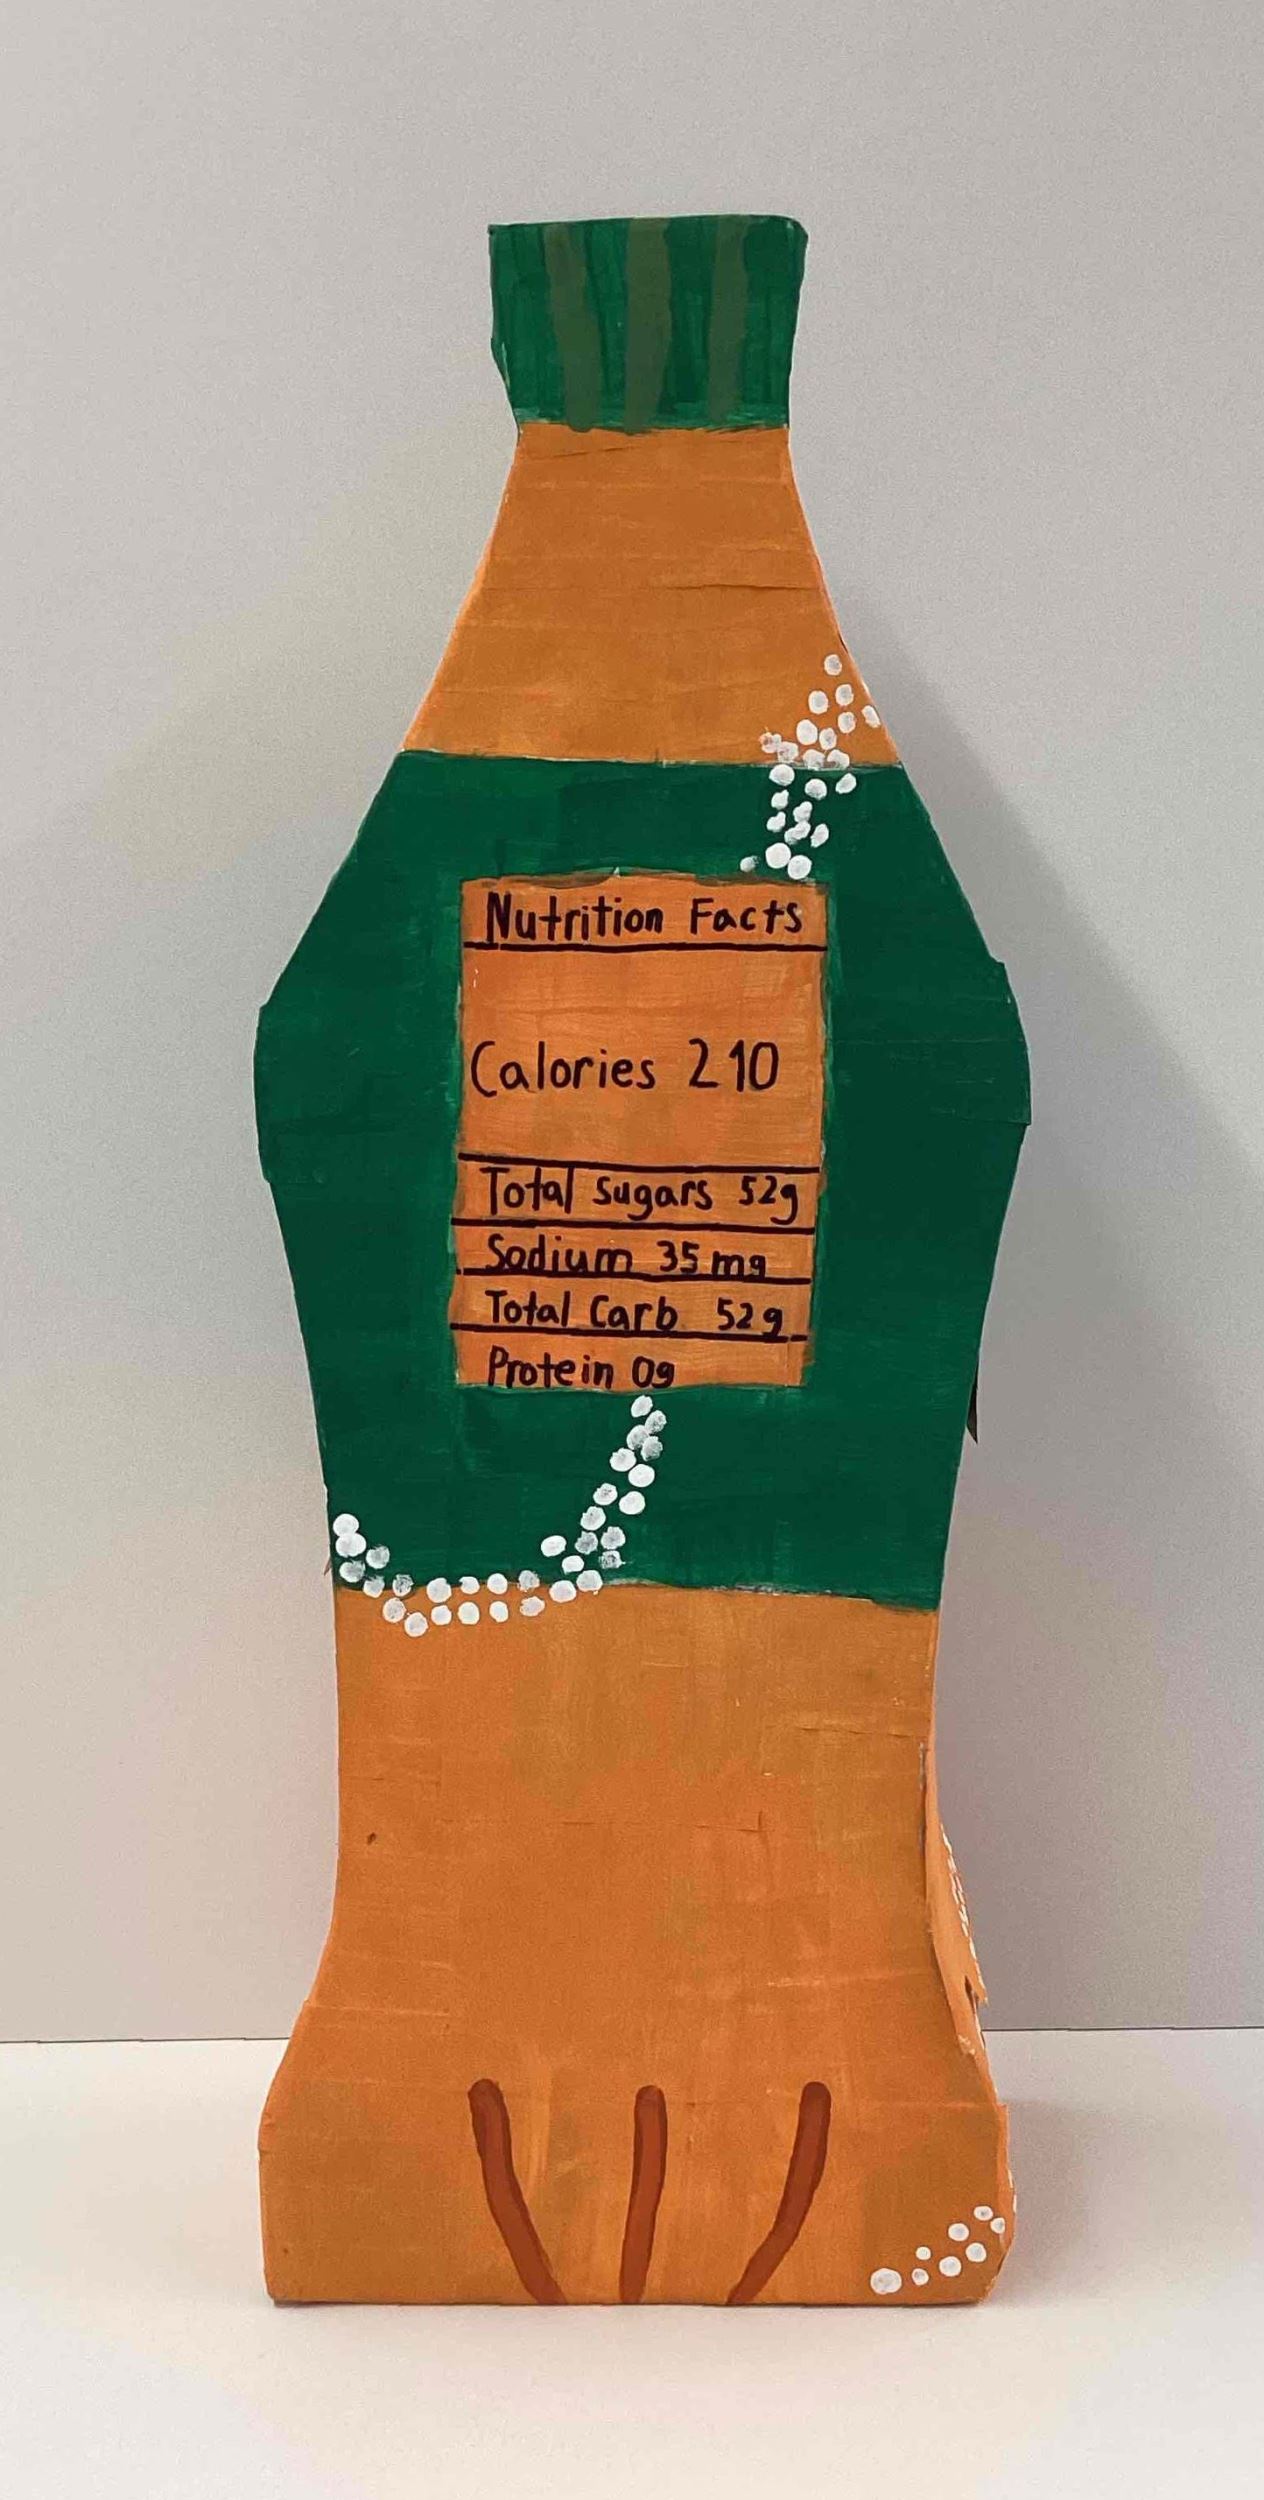 Nutrition Facts
Calories 210
Total sugars 52g
Sodium 35mg
Total Carb 52g
Protein 0g